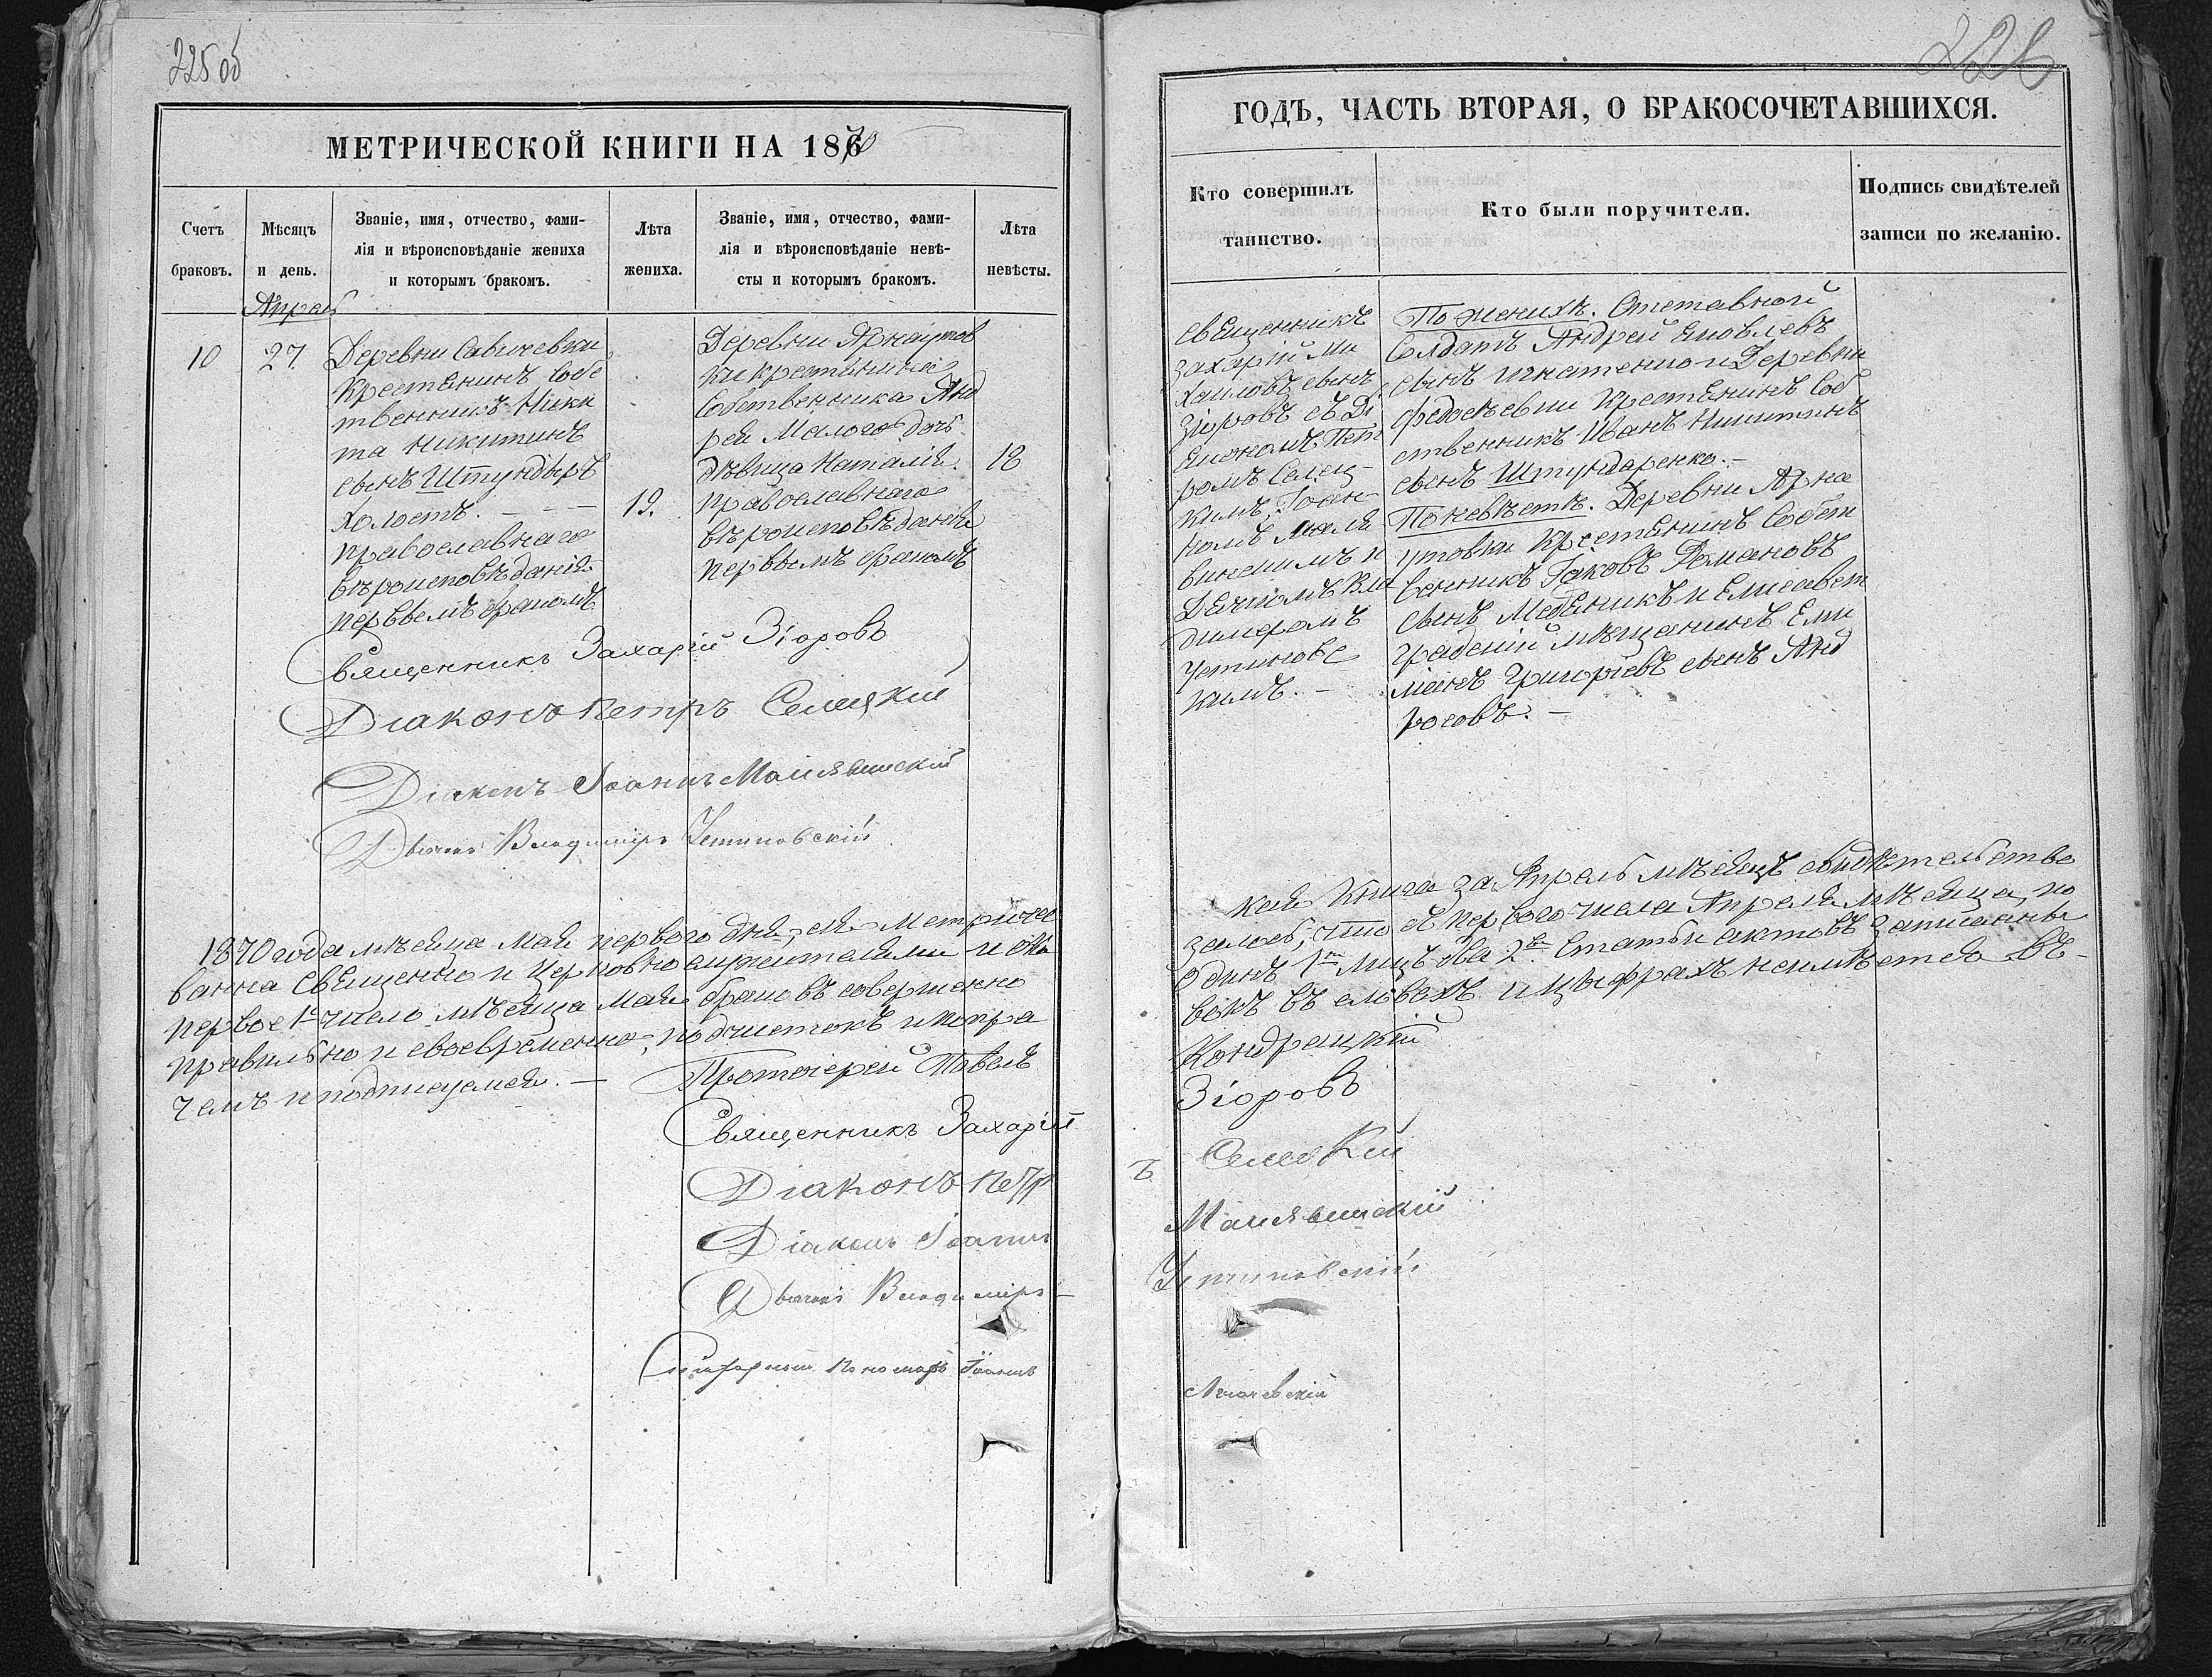 225 об
МЕТРИЧЕСКОЙ КНИГИ НА 1870
Счетъ
браковъ.
Мѣсяцъ
и день.
Званіе, имя, отчество, фами-
лія и вѣроисповѣданіе жениха
и которымъ бракомъ.
Лѣта
жениха.
Званіе, имя, отчество, фами-
лія и вѣроисповѣданіе невѣ-
сты и которымъ бракомъ.
Лѣта
невѣсты.
Апрель
10
27.
Деревни Савичевки
Крестянинъ Собс
твенникъ Ники
та Никитинъ
сынъ Штундеръ
холостъ. - - -
православнаго
вѣроисповѣданія
первымъ бракомъ
19.
Деревни Арнаутов
ки крестьянина
Собственника Анд
рея Малого дочь
дѣвица Наталія.
православнаго
вѣроисповѣданія
первымъ бракомъ
18
Священникъ Захарій Зіоровъ
Діаконъ Петръ Селецкій
Діаконъ Іоаннъ Малявинскій
Дьячекъ Владиміръ Устиновскій
1870 года мѣсяца Мая первого дня, сія Метричес
ванна Священно и Церковно служителями и ока
первое 1е число мѣсяца Мая браковъ совершено
правильно и своевременно, подчистокъ и попра
чемъ и подписуемся. —
Протоіерей Павелъ
Священникъ Захарій
Діаконъ Петр
Діаконъ Іоаннъ
Дьячекъ Владиміръ
Пономарь Іоаннъ
226
ГОДЪ, ЧАСТЬ ВТОРАЯ, О БРАКОСОЧЕТАВШИХСЯ.
Кто совершилъ
таинство.
Кто были поручители.
Подпись свидѣтелей
записи по желанію.
Священникъ
Захарій Ми
хаиловъ сынъ
Зіоровъ съ Ді
якономъ Пет
ромъ Селец-
кимъ, Іоан
номъ Маля
винскимъ и
Дячкомъ Вла
димеромъ
Устиновс
кимъ. —
По женихѣ. Отставной
Солдатъ Андрей Яковлевъ
сынъ Игнатенко и Деревни
Федосѣевки Крестянинъ Соб
ственникъ Иванъ Никитинъ
сынъ Штундаренко. —
По невѣстѣ. Деревни Арна
утовки Крестянинъ Собст
венникъ Іаковъ Романовъ
сынъ Медяникъ и Елисавет
градскій мѣщанинъ Еми
ліанъ Григорьевъ сынъ Анд
росовъ. —
кая Книга за Апрель мѣсяцъ свидѣтельство
залось, что съ первого числа Апреля мѣсяца, по
Одинъ 1нъ лицъ два 2а Статьи актовъ записанны
вокъ въ словахъ и цыфрахъ неимѣется въ-
Кондрацкій
Зіоровъ
ъ Селецкій
Малявинскій
Устиновскій